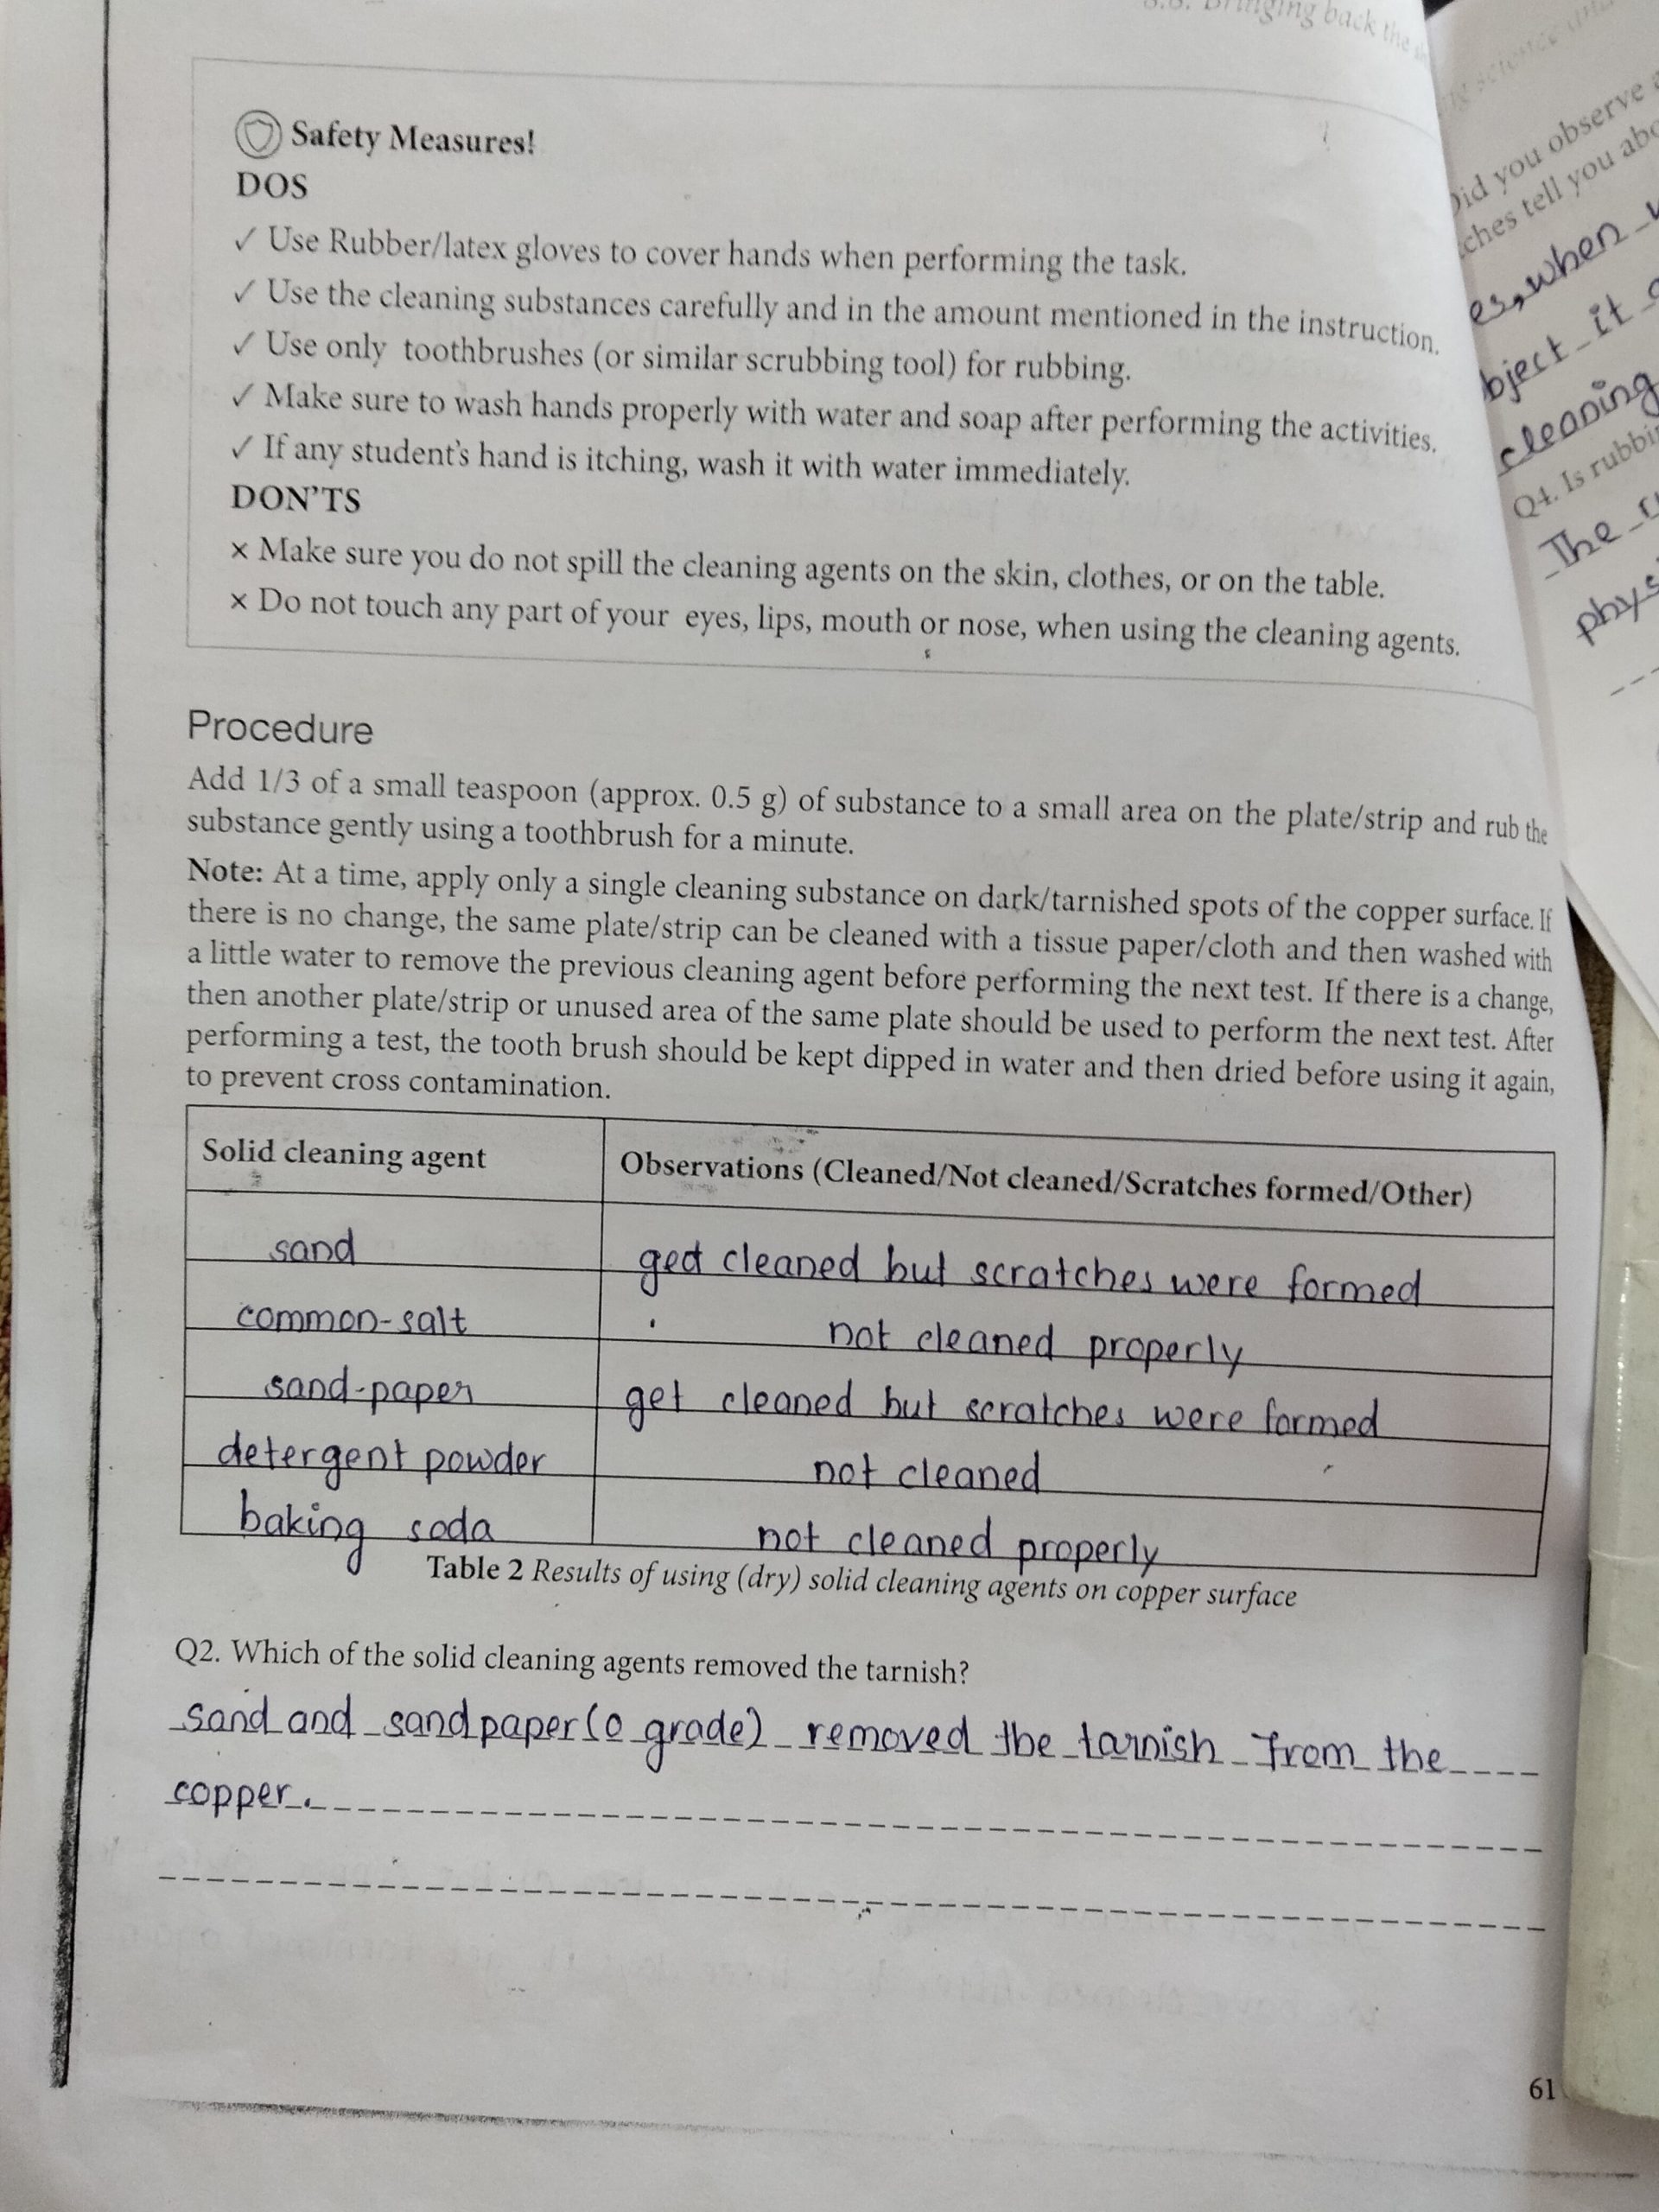 3.8. Bringing back the
Safety Measures!
DOS
✓ Use Rubber/latex gloves to cover hands when performing the task.
✓ Use the cleaning substances carefully and in the amount mentioned in the instruction.
✓ Use only toothbrushes (or similar scrubbing tool) for rubbing.
✓ Make sure to wash hands properly with water and soap after performing the activities.
✓ If any student's hand is itching, wash it with water immediately.
DON'TS
× Make sure you do not spill the cleaning agents on the skin, clothes, or on the table.
× Do not touch any part of your eyes, lips, mouth or nose, when using the cleaning agents.
Procedure
Add 1/3 of a small teaspoon (approx. 0.5 g) of substance to a small area on the plate/strip and rub the
substance gently using a toothbrush for a minute.
Note: At a time, apply only a single cleaning substance on dark/tarnished spots of the copper surface. If
there is no change, the same plate/strip can be cleaned with a tissue paper/cloth and then washed with
a little water to remove the previous cleaning agent before performing the next test. If there is a change,
then another plate/strip or unused area of the same plate should be used to perform the next test. After
performing a test, the tooth brush should be kept dipped in water and then dried before using it again,
to prevent cross contamination.
Solid cleaning agent Observations (Cleaned/Not cleaned/Scratches formed/Other)
sand ged cleaned but scratches were formed
common-salt not cleaned properly
sand-paper get cleaned but scratches were formed
detergent powder not cleaned
baking soda not cleaned properly
Table 2 Results of using (dry) solid cleaning agents on copper surface
Q2. Which of the solid cleaning agents removed the tarnish?
sand and sandpaper(0 grade) removed the tarnish from the
copper.
61
Did you observe
tell you
when
it
cleaning
Q4. Is
The